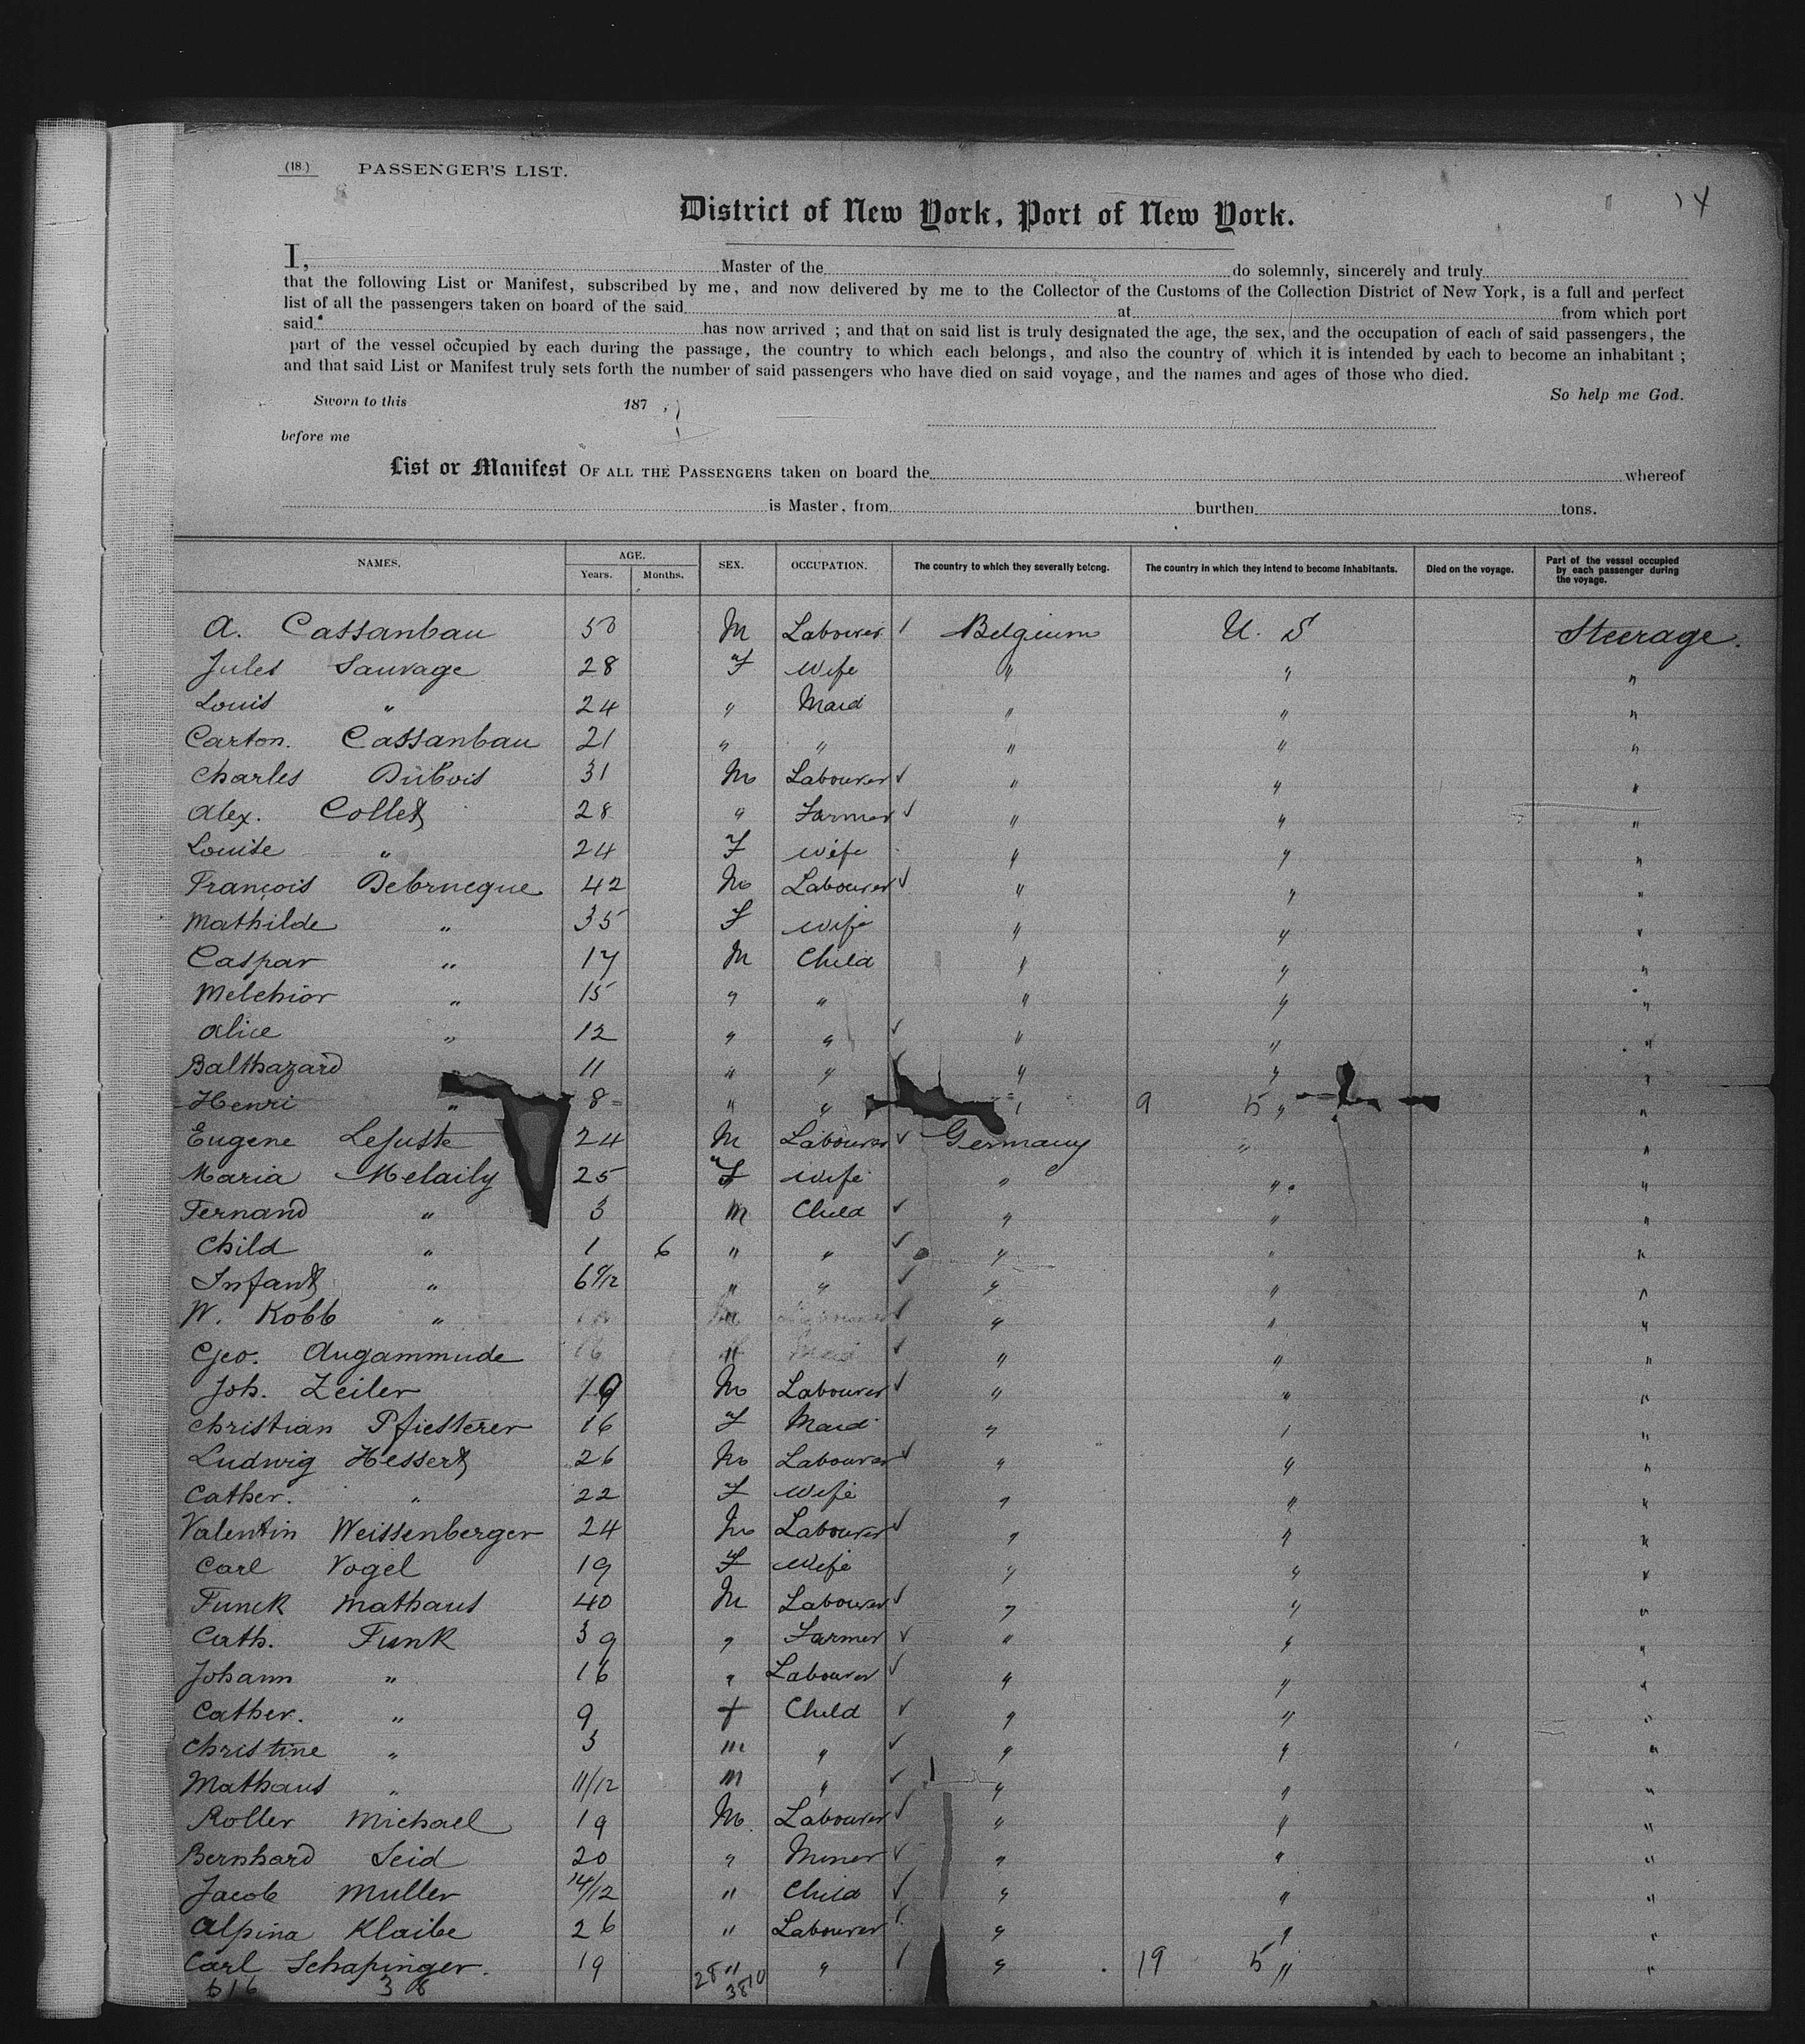 (18.) PASSENGER'S LIST.
14
District of New York, Port of New York.
I, Master of the do solemnly, sincerely and truly
that the following List or Manifest, subscribed by me, and now delivered by me to the Collector of the Customs of the Collection District of New York, is a full and perfect
list of all the passengers taken on board of the said at from which port
said has now arrived ; and that on said list is truly designated the age, the sex, and the occupation of each of said passengers, the
part of the vessel occupied by each during the passage, the country to which each belongs, and also the country of which it is intended by each to become an inhabitant ;
and that said List or Manifest truly sets forth the number of said passengers who have died on said voyage, and the names and ages of those who died.
So help me God.
Sworn to this 187
before me
List or Manifest OF ALL THE PASSENGERS taken on board the whereof
is Master, from burthen tons.
NAMES. AGE. Years. Months. SEX. OCCUPATION. The country to which they severally belong. The country in which they intend to become inhabitants. Died on the voyage. Part of the vessel occupied by each passenger during the voyage.
A. Cassanbau 50 M Labourer Belgium U. S Steerage.
Jules Sauvage 28 F Wife " " "
Louis " 24 " Maid " " "
Carton. Cassanbau 21 " " " " "
Charles Dubois 31 M Labourer ✓ " " "
Alex. Collet 28 " Farmer ✓ " " "
Louise " 24 F Wife " " "
François Debrucque 42 M Labourer ✓ " " "
Mathilde " 35 F Wife " " "
Caspar " 17 M Child " " "
Melchior " 15 " " " " "
Alice " 12 " " ✓ " " "
Balthazard 11 " " ✓ " " "
Henri " 8 " " " 9 5 " "
Eugene Lejuste 24 M Labourer ✓ Germany " "
Maria Melaily 25 F Wife " " "
Fernand " 3 M Child ✓ " " "
Child " 1 6 " " ✓ " " "
Infant " 6/12 " " ✓ " " "
W. Kobb " M ✓ " " "
Geo. Augammude 16 " Maid ✓ " " "
Joh. Zeiler 19 M Labourer ✓ " " "
Christian Pfiesterer 16 F Maid " " "
Ludwig Hessert 26 M Labourer ✓ " " "
Cather. " 22 F Wife " " "
Valentin Weissenberger 24 M Labourer ✓ " " "
Carl Vogel 19 F Wife " " "
Funck Mathaus 40 M Labourer ✓ " " "
Cath. Funk 39 " Farmer ✓ " " "
Johann " 16 " Labourer ✓ " " "
Cather. " 9 f Child ✓ " " "
Christine " 3 m " ✓ " " "
Mathaus " 11/12 m " ✓ " " "
Roller Michael 19 M. Labourer ✓ " " "
Bernhard Seid 20 " Miner ✓ " " "
Jacob Muller 14/12 " Child ✓ " " "
Alpina Klaibe 26 " Labourer " " "
Carl Schapinger. 19 " " " 19 5 " "
616 38 28 10 38